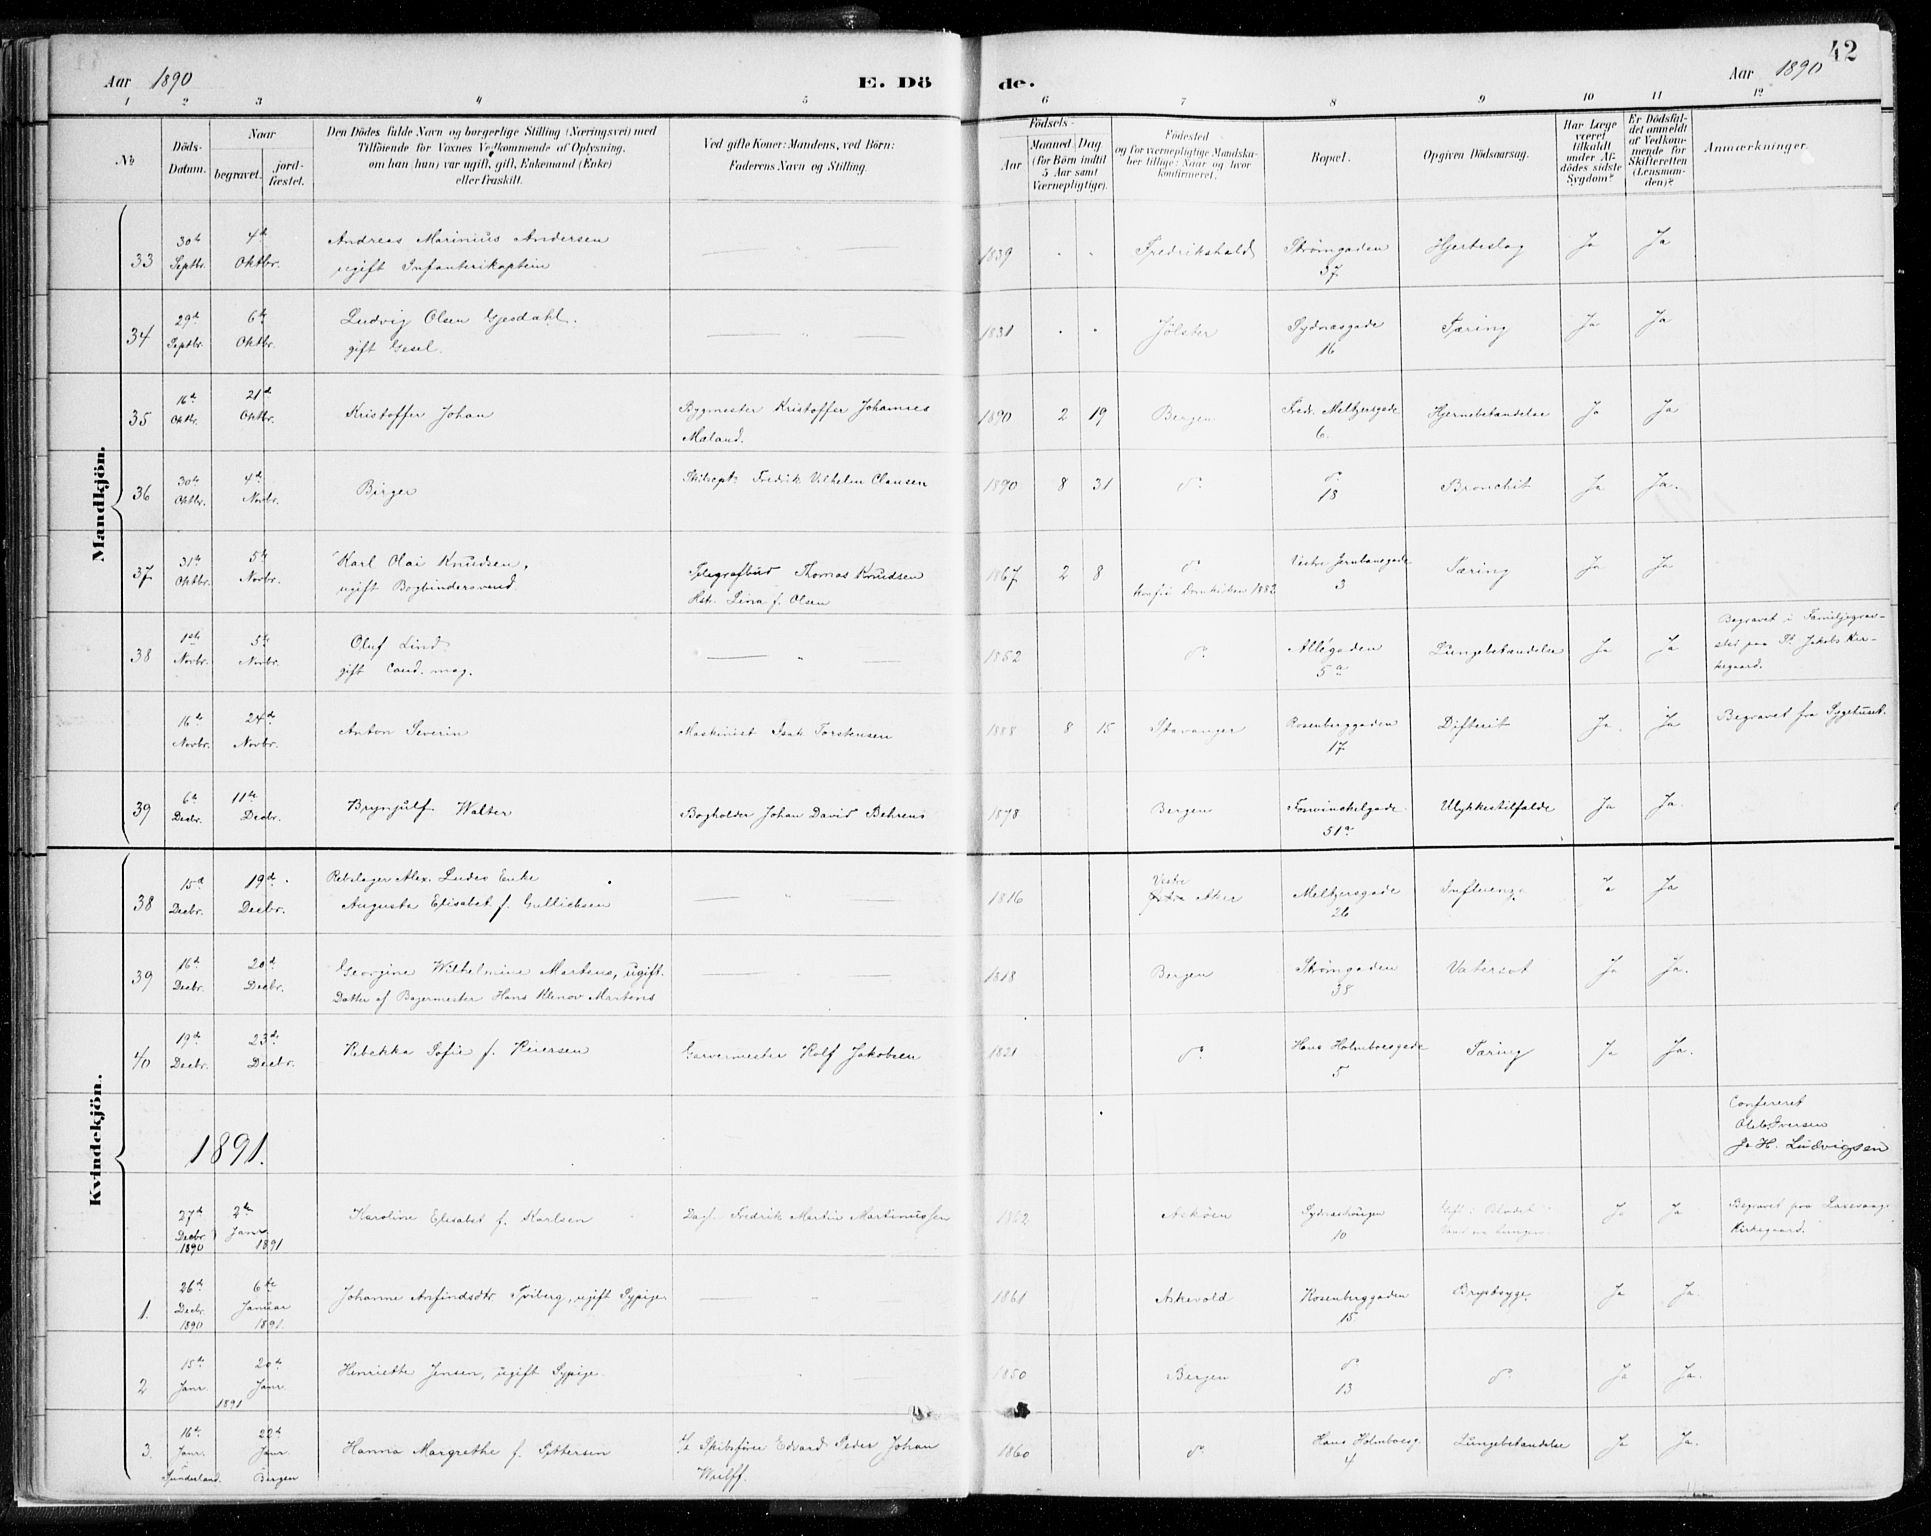 42
Aar 1890
E. Dö
de.
Aar 1890
1 2 3 4 5 6 7 8 9 10 11 12
No
Döds-
Datum.
Naar
begravet.
jord-
fæstet.
Den Dödes fulde Navn og borgerlige Stilling (Næringsvei) med
Tilföiende for Voxnes Vedkommende af Oplysning,
om han (hun) var ugift, gift, Enkemand (Enke)
eller fraskilt.
Ved gifte Koner: Mandens, ved Börn:
Faderens Navn og Stilling.
Födsels-
Aar
Maaned Dag
(for Börn indtil
5 Aar samt
Værnepligtige).
Födested
og for værnepligtige Mandska-
ber tillige: Naar og hvor
konfirmeret.
Bopæl.
Opgiven Dödsaarsag.
Har Læge
været
tilkaldt
under Af-
dödes sidste
Sygdom?
Er Dödsfal-
det anmeldt
af Vedkom-
mende for
Skifteretten
(Lensman-
den)?
Anmærkninger.
Mandkjön.
33 30te Septbr. 4de Oktbr. Andreas Marinius Andersen
ugift Infanterikaptein
1839 Fredrikshald Strömgaden 37 Hjerteslag Ja Ja
34 29de Septbr. 6te Oktbr. Ludvig Olsen Gjesdahl.
gift Gesel.
1831 Jölster Sydnæsgade 16 Tæring Ja Ja
35 16de Oktbr. 21de Oktbr. Kristoffer Johan
Bygmester Kristoffer Johannes
Mæland.
1890 2 19 Bergen Fredr. Meltzersgade 6. Hjernebetændelse Ja Ja
36 30te Oktbr. 4de Novbr. Birger
Skibscpt. Fredrik Vilhelm Clausen
1890 8 31 do do 18 Bronchit Ja Ja.
37 31te Oktbr. 5te Novbr. Karl Olai Knudsen,
ugift Bogbindersvend.
Telegrafbud Thomas Knudsen
Hstr. Lina f. Olsen
1867 2 8 do
konfir. Domkirken 1882
Vestre Jernbanegade 3 Tæring Ja Ja
38 1ste Novbr. 5te Novbr. Oluf Lind
gift Cand. mag.
1852 do Allégaden 5a Lungebetændelse Ja Ja
Begravet i Familjegrav-
sted paa St. Jakobs Kir-
kegaard.
16de Novbr. 24de Novbr. Anton Severin
Maskinist Isak Torstensen
1888 8 15 Stavanger Rosenberggaden 17 Difterit Ja. Ja
Begravet fra Sygehuset.
39 6te Decbr. 11te Decbr. Brynjulf Walter
Bogholder Johan David Behrens
1878 Bergen Fosvinckelgade 51a Ulykkestilfælde Ja Ja.
Kvindekjön.
38 15de Decbr. 19de Decbr. Rebslager Alex. Luder Enke
Augusta Elisabet f. Gullichsen
1816 Vestre Aker Meltzersgade 26 Influenza Ja Ja
39 16de Decbr. 20de Decbr. Georgine Wilhelmine Martens, ugift.
Datter af Bagermester Hans Klenov Martens
1818 Bergen Strömgaden 38 Vatersot Ja Ja.
40 19de Decbr. 23de Decbr. Rebekka Sofie f. Reiersen
Garvermester Rolf Jakobsen
1821 do Hans Holmboesgade 5 Tæring Ja Ja.
1891.
Confereret
Ole Iversen
H. Ludvigsen
27de Decbr. 1890 2de Janr. 1891 Karoline Elisabet f. Karlsen
Dagl. Fredrik Martin Martinussen
1862 Askøen Sydneshougen 10 Gift i Blodet Ja Ja
Begravet paa Laxevaags
Kirkegaard.
1. 26de Decbr. 1890 6te Januar 1891. Johanne Anfindsdtr. Tviberg, ugift Sypige
1861 Askevold Rosenberggaden 15 Brystsyge Ja Ja.
2 15de Janr. 20de Janr. 1891 Henriette Jensen, ugift Sypige
1850 Bergen do 13 do Ja Ja.
3. 16de Janr. Sunderland. 22de Janr. Bergen Hanna Margrethe f. Pettersen
Skibsfører Edvard Peder Johan
Wulff.
1860 do Hans Holmboesg. 4 Lungebetændelse Ja Ja.